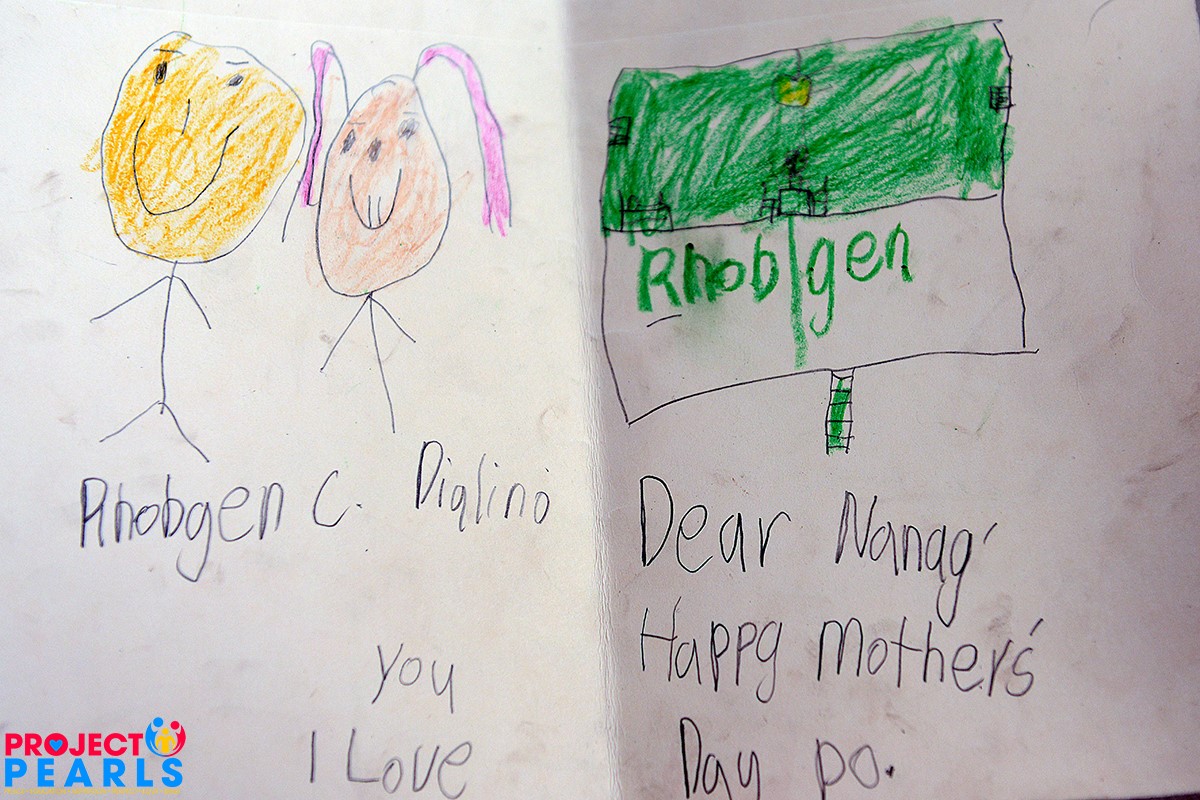 Rhobgen C. Dialino
you
I Love
Rhobgen
Dear Nanag'
Happy mother's
Day po.
PROJECT
PEARLS